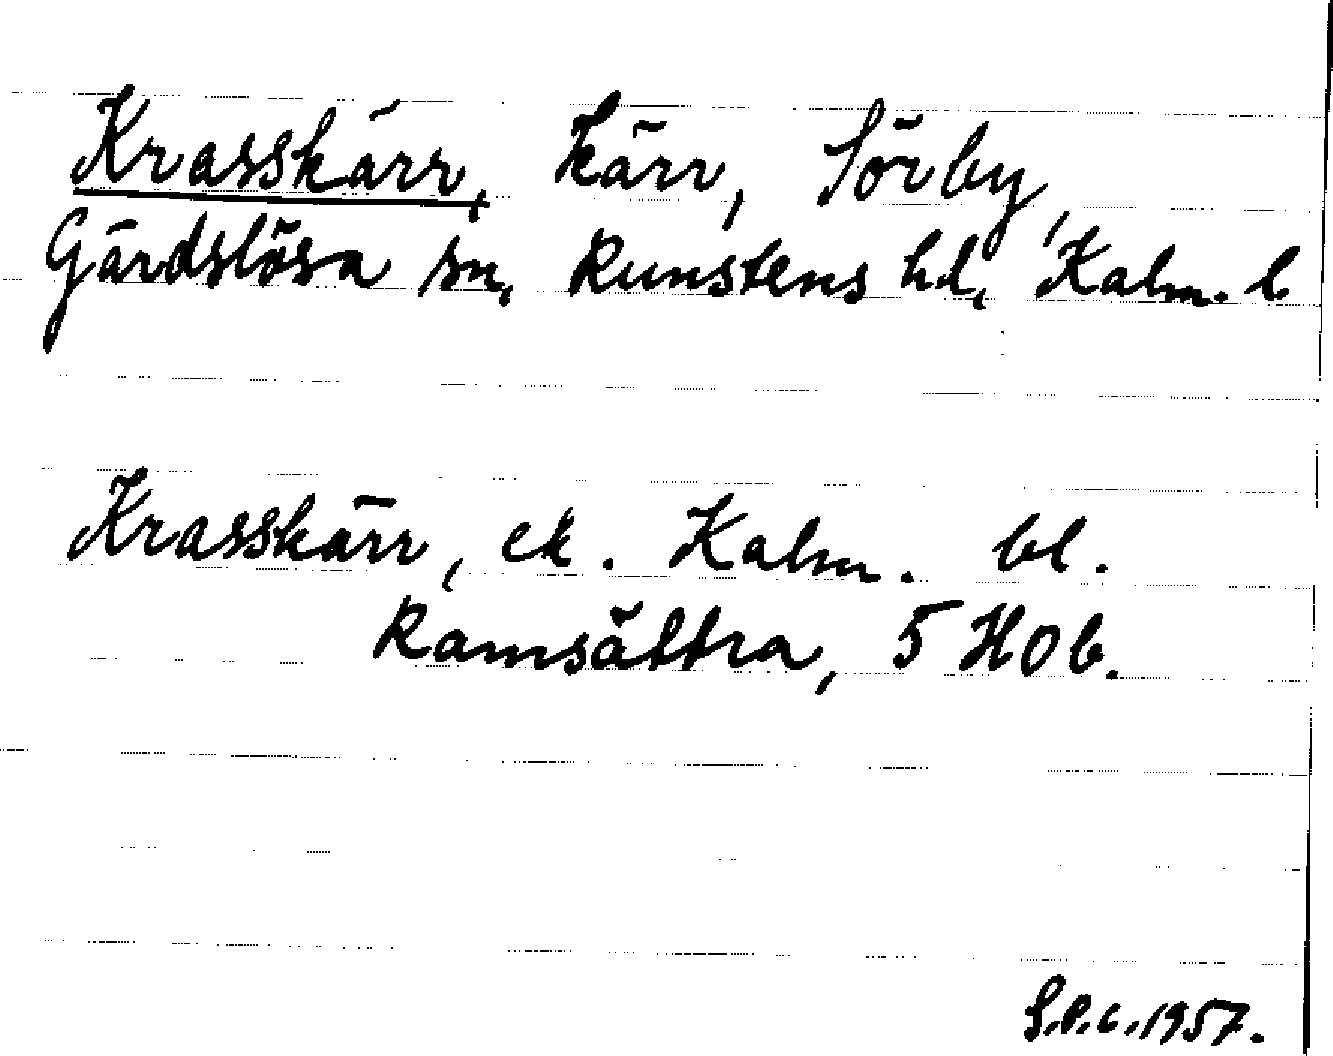 Krasskärr, kärr, Sörby,
Gärdslösa sn, Runstens hd, Kalm. l
Krasskärr, ek. Kalm. bl.
Ramsättra, 5 H0b.
S.P.L. 1957.